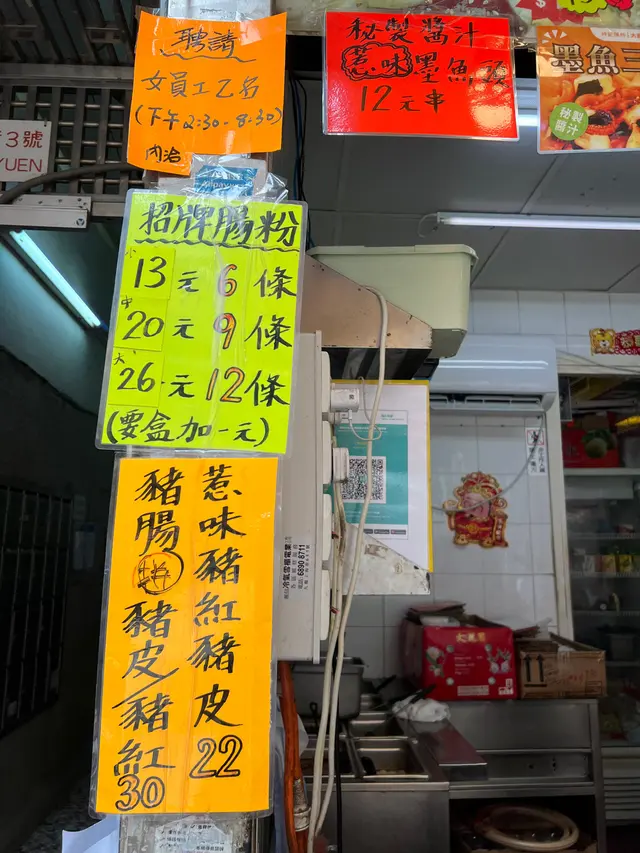 聘請
女員工乙名
(下午2:30-8:30)
內洽
秘製醬汁
惹味墨魚頭
12元串
墨魚三
秘製
醬汁
3號
YUEN
Alipay
招牌腸粉
小13元6條
中20元9條
大26元12條
(要盒加一元)
惹味豬紅豬皮
22
豬腸拼豬皮/豬紅
30
冷氣雪櫃電業
電話:6890 6711